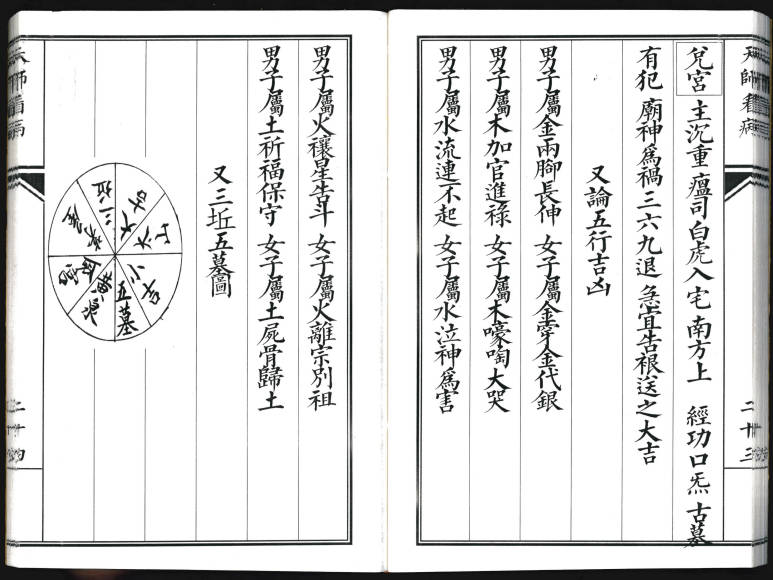 天師看病
二十三
兌宮 主沉重瘟司白虎入宅南方上 經功口炁 古墓
有犯 廟神爲禍三六九退 急宜告禳送之大吉
又論五行吉凶
男子屬金兩腳長伸 女子屬金穿金代銀
男子屬木加官進祿 女子屬木嚎啕大哭
男子屬水流連不起 女子屬水泣神爲害
男子屬火禳星告斗 女子屬火離宗別祖
男子屬土祈福保守 女子屬土屍骨歸土
又三坵五墓圖
五墓
二十四